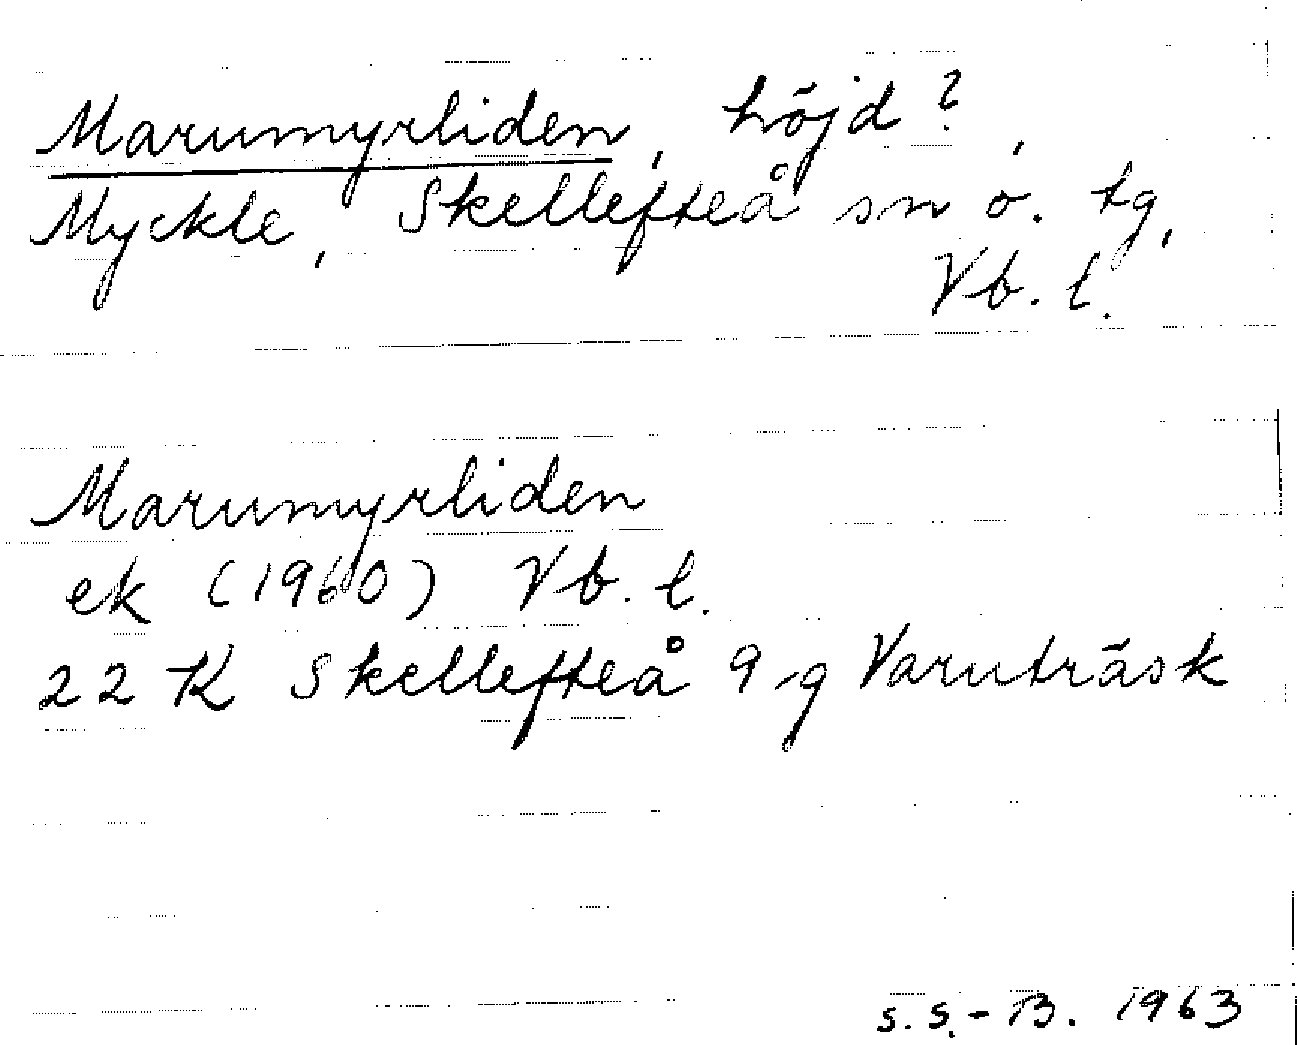 Marumyrliden, höjd?,
Myckle, Skellefteå sn o. tg,
Vb. l.
Marumyrliden
ek (1960) Vb. l.
22 K Skellefteå 9 g Varuträsk
S. S.-B. 1963